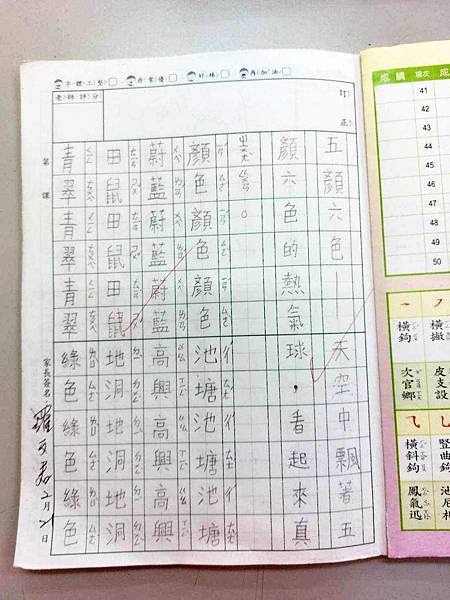 字體工整 非常優 好棒 再加油
老師評分
訂正
第 課
五顏六色—天空中飄著五
顏六色的熱氣球，看起來真
ㄓㄨㄤˋㄍㄨㄢ。
顏色顏色顏色池塘池塘池塘
蔚藍蔚藍蔚藍高興高興高興
田鼠田鼠田鼠地洞地洞地洞
青翠青翠青翠綠色綠色綠色
家長簽名 2月21日
成績 項次 成
41
42
43
44
45
46
47
48
49
50
橫鉤
橫撇
次官鄉
皮支設
橫斜鉤
豎曲鉤
鳳氣迅